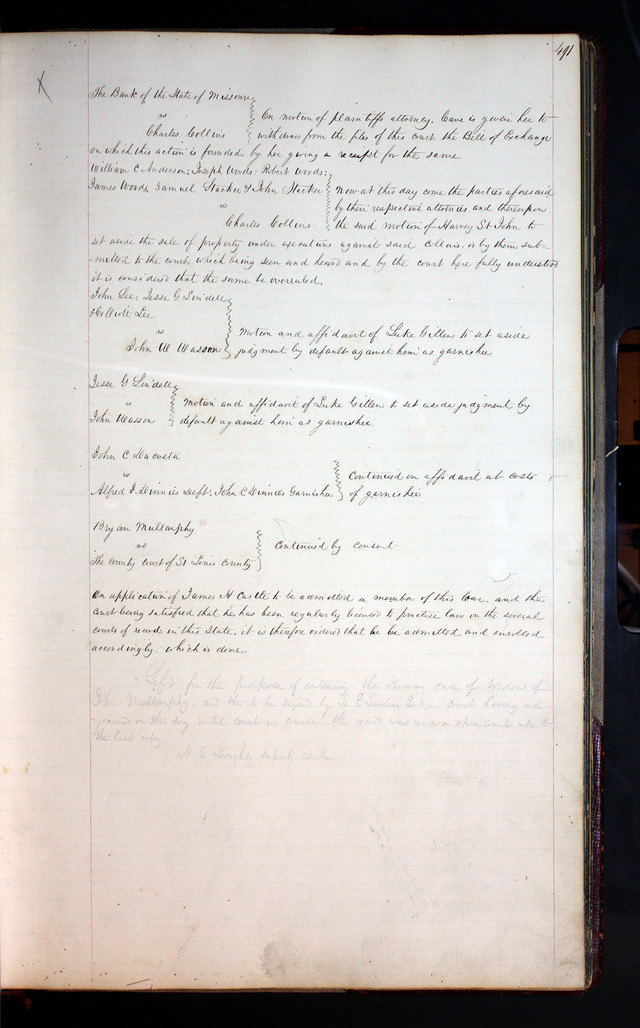 491
X
The Bank of the State of Missouri
vs
Charles Collins
On motion of plaintiffs attorney, Leave is given her to
withdraw from the files of this court the Bill of Exchange
on which this action is founded, by her giving a receipt for the same
William C Anderson; Joseph Woods; Robert Woods;
James Woods, Samuel Stacker & John Stacker
vs
Charles Collins.
now at this day come the parties aforesaid
by their respective attornies, and thereupon
the said motion of Harvey St John to
set aside the sale of property under executions against said Collins, is by them sub-
-mitted to the court, which being seen and heard and by the court here fully understood
it is considered that the same be overruled.
John Lee; Jesse G Lindell
& Lee
vs
John W Wasson
Motion and affidavit of Luke Gillen to set aside
judgment by default against him as garnishee
Jesse G Lindell
vs
John Wasson
Motion and affidavit of Luke Gillen to set aside judgment by
default against him as garnishee.
John C Dacosta
vs
Alfred J. Dinnies Deft; John C Dinnies Garnishee
Continued on affidavit at costs
of garnishee
Bryan Mullanphy
vs
The County Court of St Louis County
Continued by consent
On application of James H Castle to be admitted a member of this bar, and the
court being satisfied that he has been regularly licensed to practise law in the several
courts of record in this State, it is therefore ordered that he be admitted and enrolled
accordingly. which is done.
Left for the purpose of entering the case of Widow of
John Mullanphy, and then to be signed by Judge court having ad-
journed on this day until court in course, the record was in open court up to
the last entry
deputy clerk